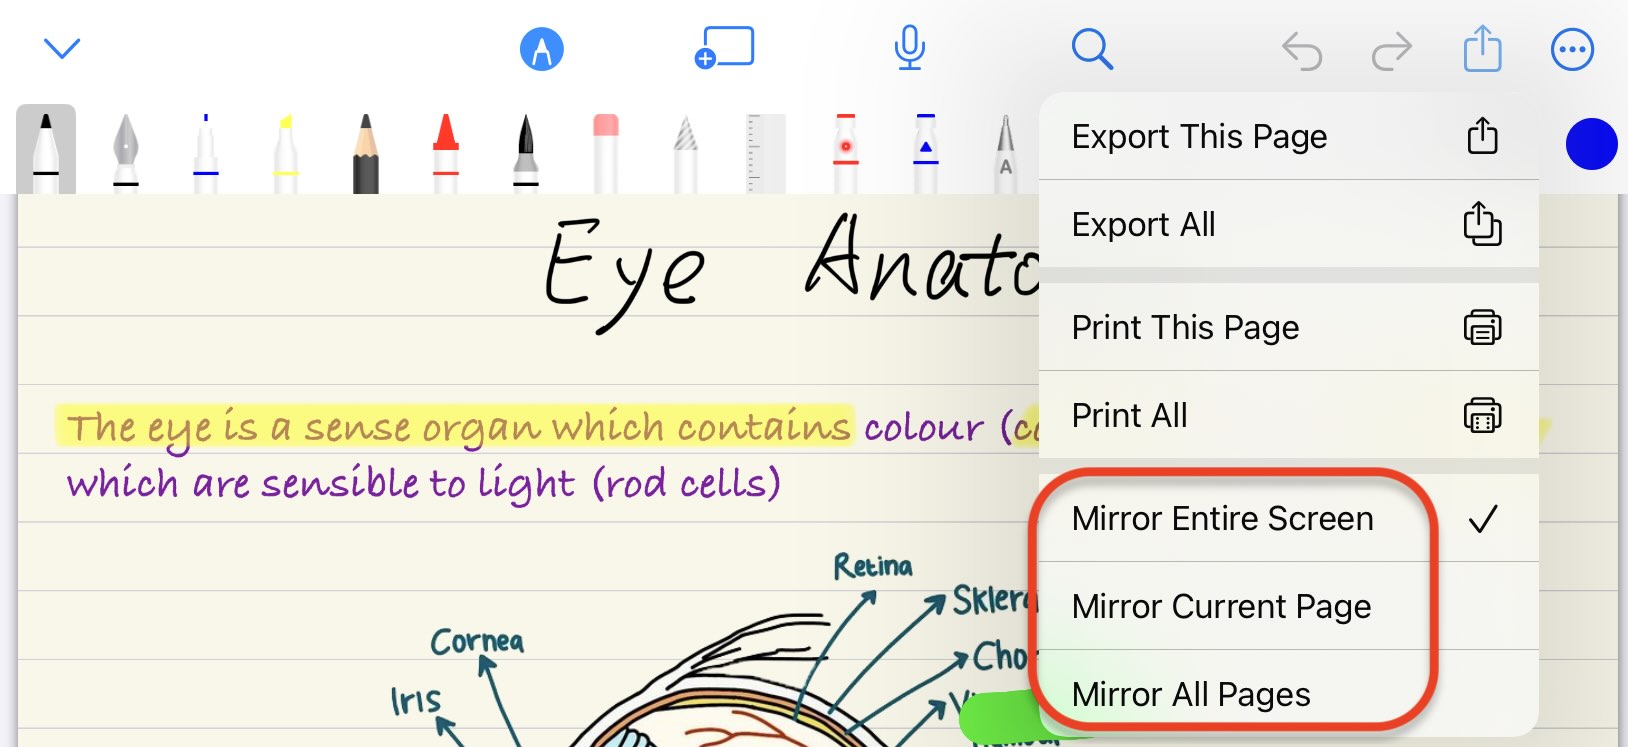 A
Export This Page
Export All
Print This Page
Print All
Mirror Entire Screen
Mirror Current Page
Mirror All Pages
Eye
The eye is a sense organ which contains colour (
which are sensible to light (rod cells)
Retina
Cornea
Iris